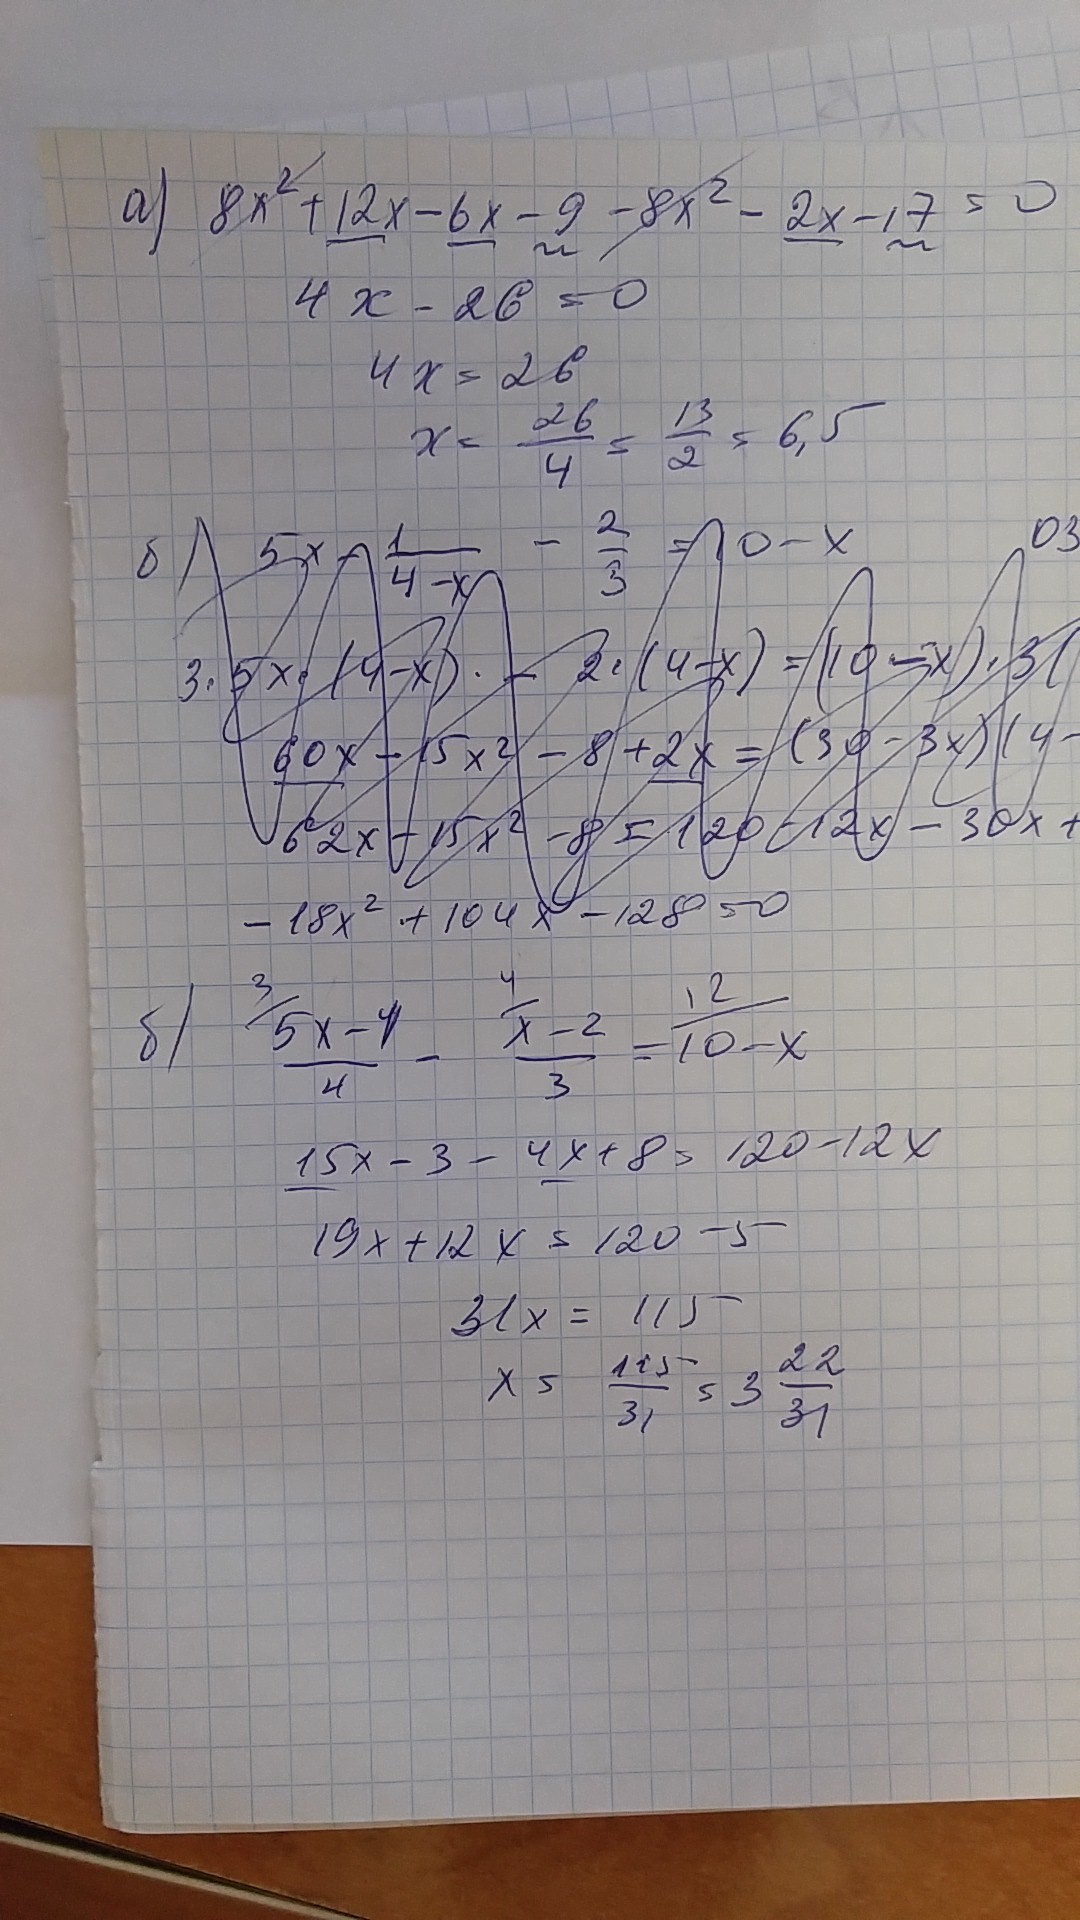 а) 8x² + 12x - 6x - 9 - 8x² - 2x - 17 = 0
4x - 26 = 0
4x = 26
x = 26/4 = 13/2 = 6,5
б) 5x - 1/(4-x) - 2/3 = 10 - x 03
3·5x·(4-x)· - 2·(4-x) = (10-x)·3(
60x - 15x² - 8 + 2x = (30-3x)(4-
62x - 15x² - 8 = 120 - 12x - 30x +
-18x² + 104x - 128 = 0
б) ³/ (5x-1)/4 - ⁴/ (x-2)/3 = ¹²/ 10-x
15x - 3 - 4x + 8 = 120 - 12x
19x + 12x = 120 - 5
31x = 115
x = 115/31 = 3 22/31